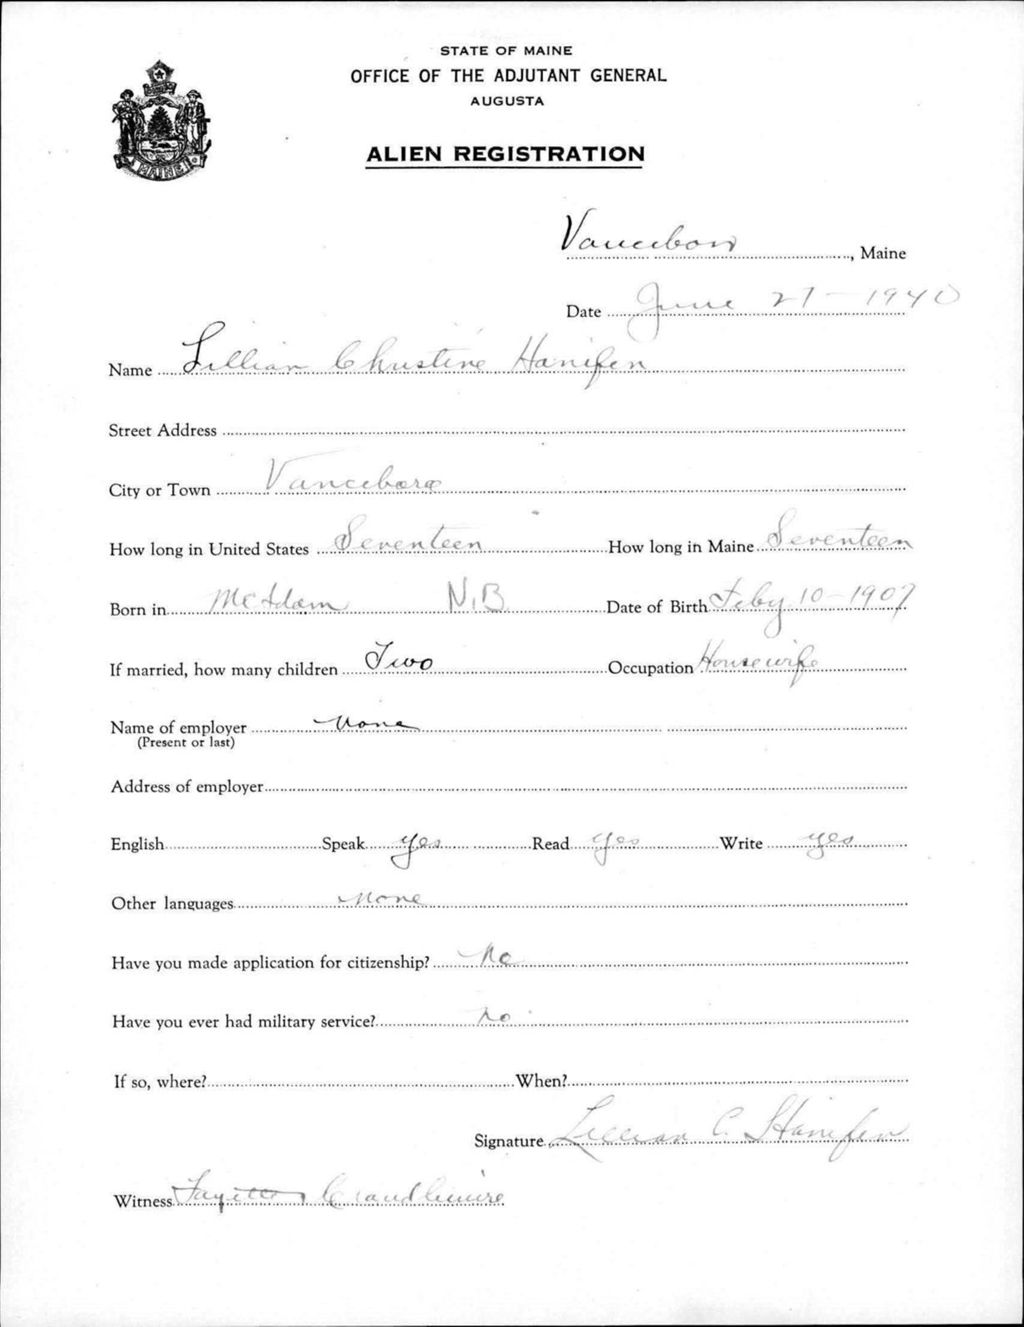 STATE OF MAINE
OFFICE OF THE ADJUTANT GENERAL
AUGUSTA
ALIEN REGISTRATION
MAINE
Vanceboro, Maine
Date June 27 - 1940
Name Lillian Christine Hanifen
Street Address
City or Town Vanceboro
How long in United States Seventeen How long in Maine Seventeen
Born in McAdam N.B. Date of Birth Feby 10 - 1907
If married, how many children Two Occupation Housewife
Name of employer None
(Present or last)
Address of employer
English Speak yes Read yes Write yes
Other languages None
Have you made application for citizenship? No
Have you ever had military service? No
If so, where? When?
Signature Lillian C. Hanifen
Witness Fayette Crandlemire